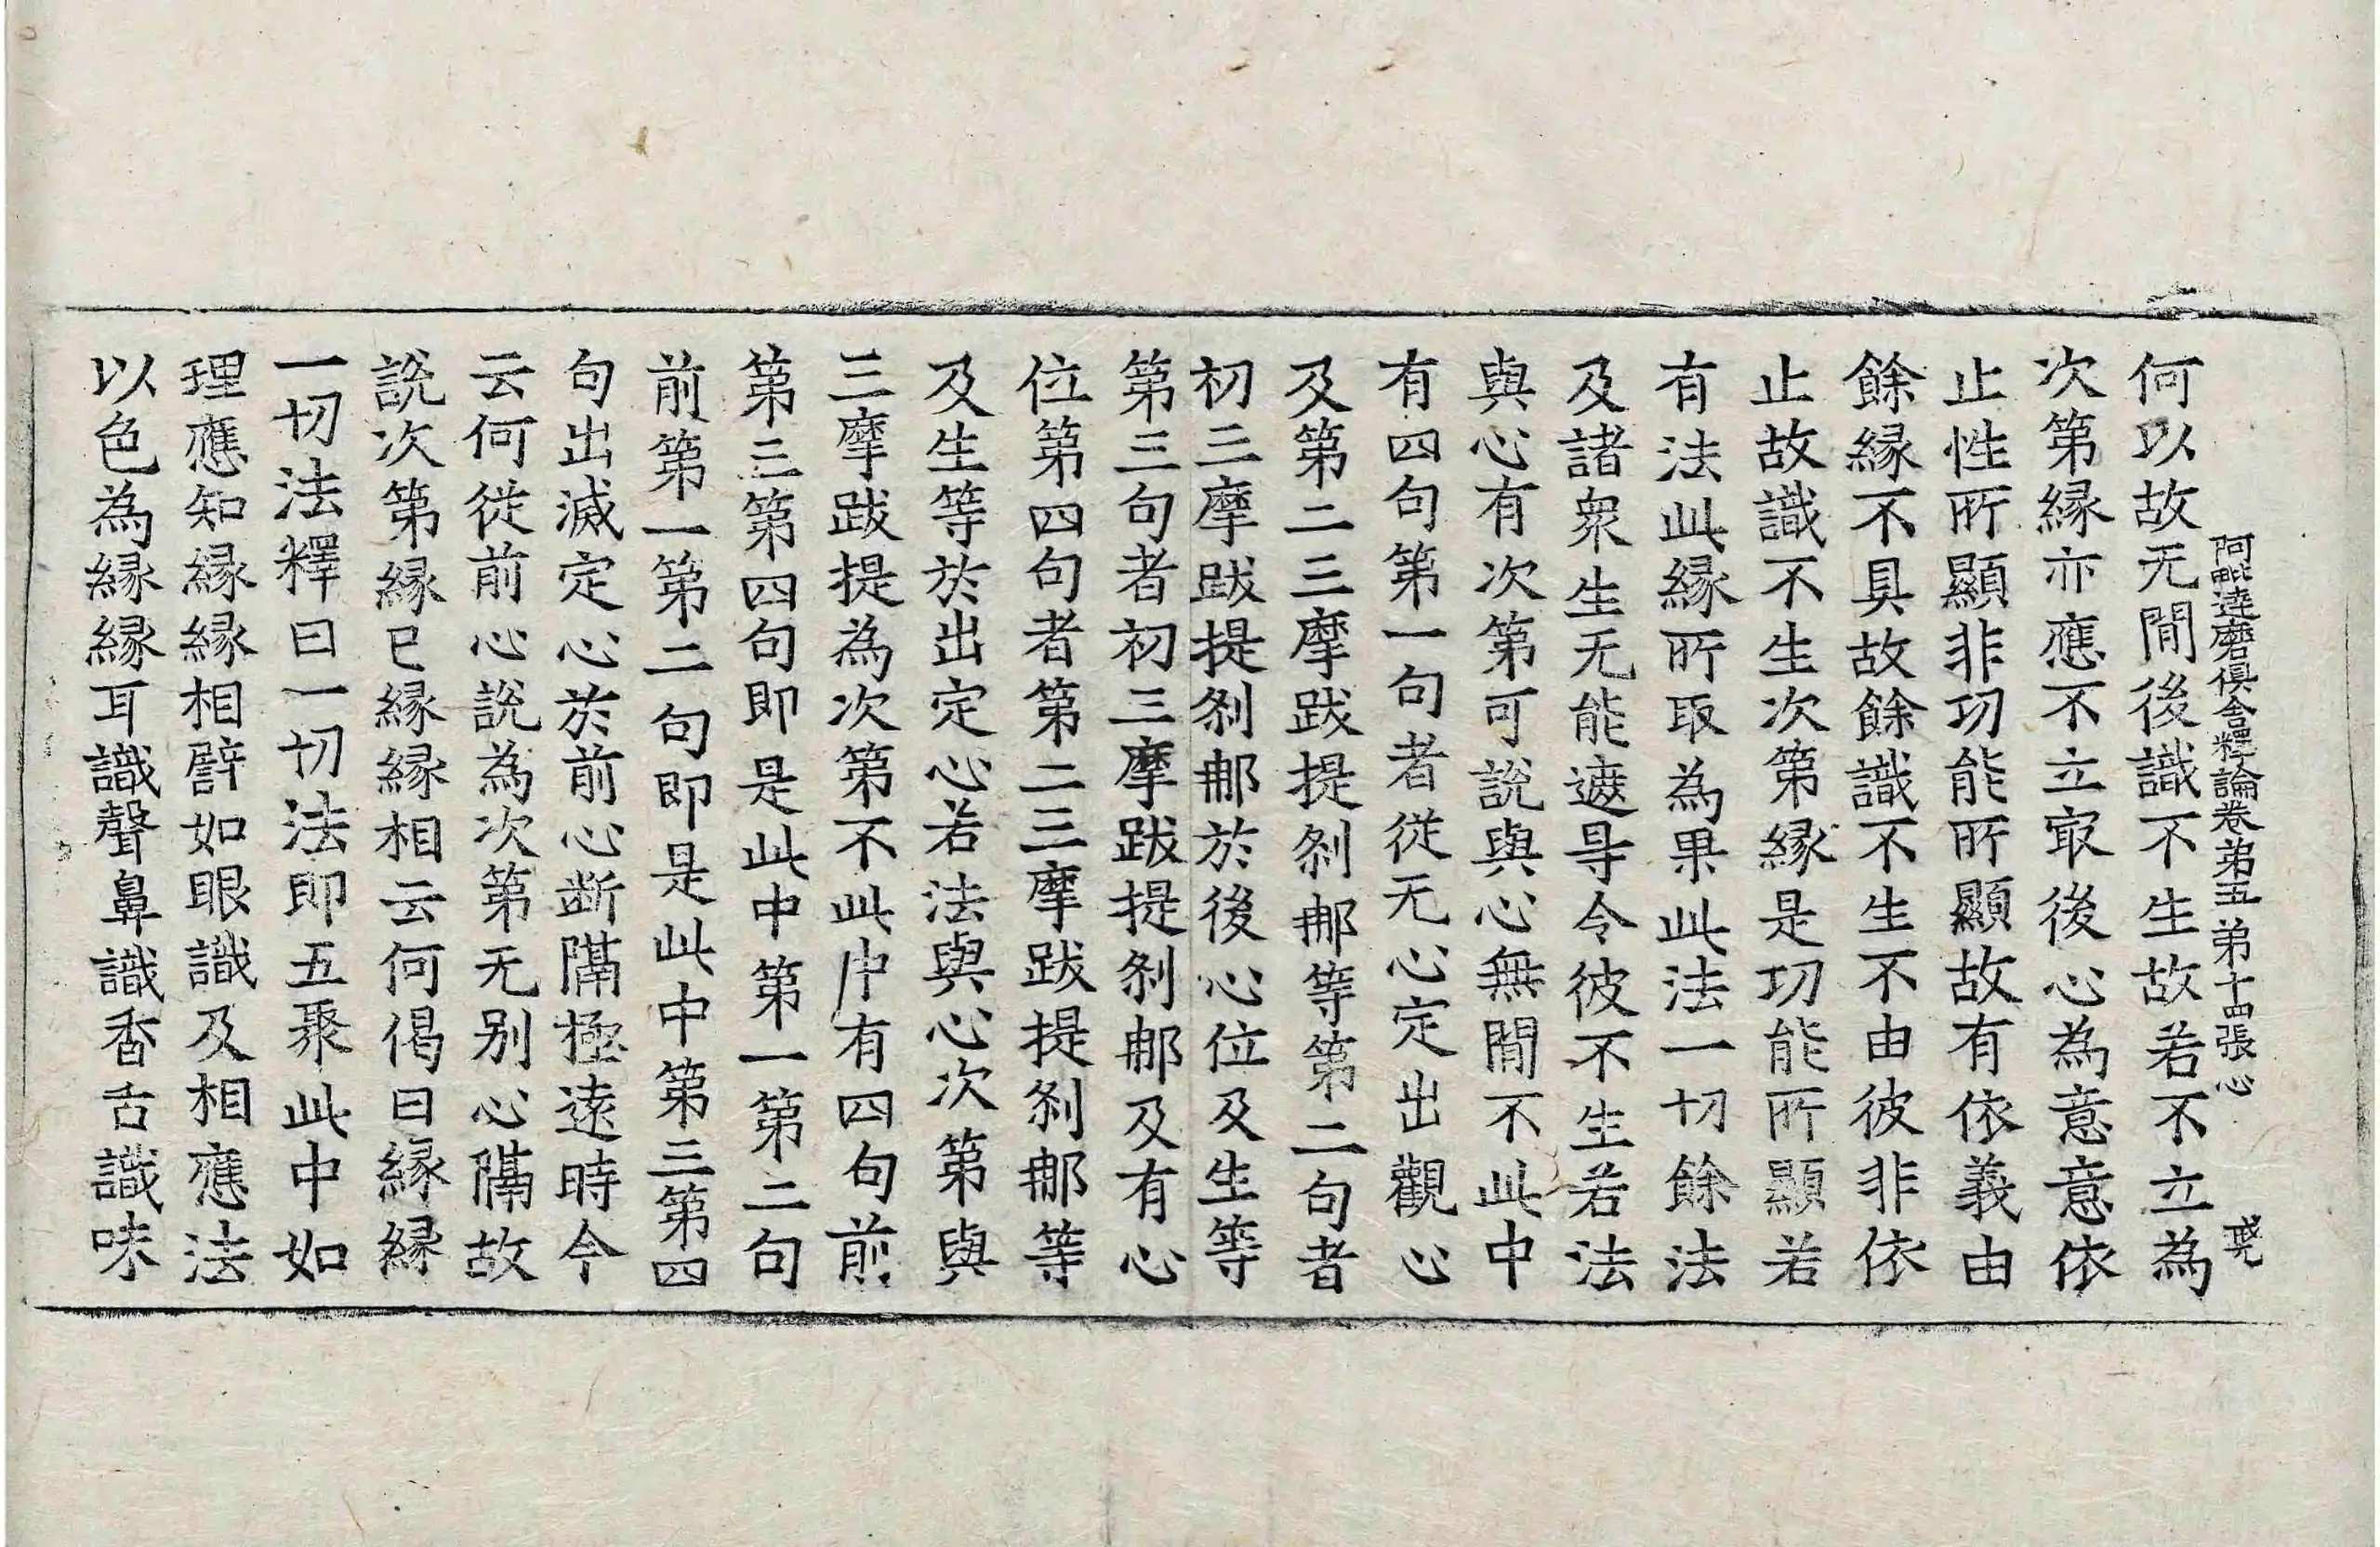 阿毗達磨俱舍釋論卷第五 第十四張 心
何以故无間後識不生故若不立為
次第縁亦應不立㝡後心為意意依
止性所顯非功能所顯故有依義由
餘縁不具故餘識不生不由彼非依
止故識不生次第縁是功能所顯若
有法此縁所取為果此法一切餘法
及諸衆生无能遮㝵令彼不生若法
與心有次第可說與心無間不此中
有四句第一句者從无心定出觀心
及第二三摩跋提剎那等第二句者
初三摩跋提剎那於後心位及生等
第三句者初三摩跋提剎那及有心
位第四句者第二三摩跋提剎那等
及生等於出定心若法與心次第與
三摩跋提為次第不此中有四句前
第三第四句即是此中第一第二句
前第一第二句即是此中第三第四
句出滅定心於前心断隔極遠時今
云何從前心說為次第无别心隔故
說次第縁已縁縁相云何偈曰縁縁
一切法釋曰一切法即五聚此中如
理應知縁縁相譬如眼識及相應法
以色為縁縁耳識聲鼻識香舌識味